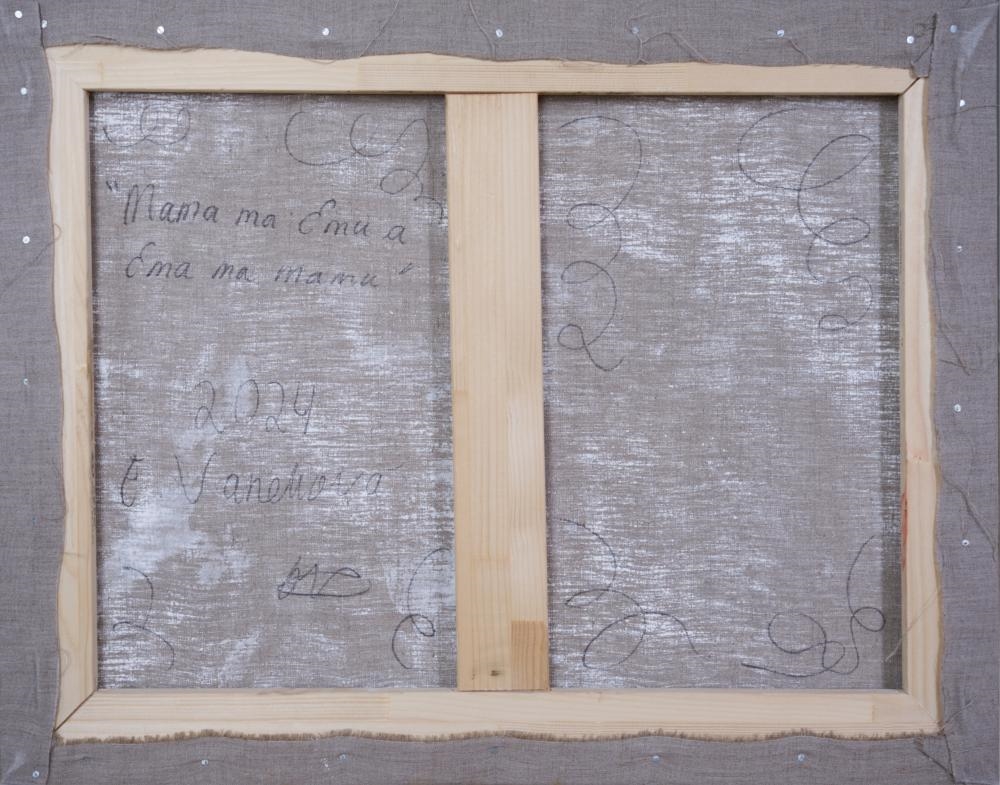 "Mama ma Emu a
Ema ma mamu"
2024
E Vaneková